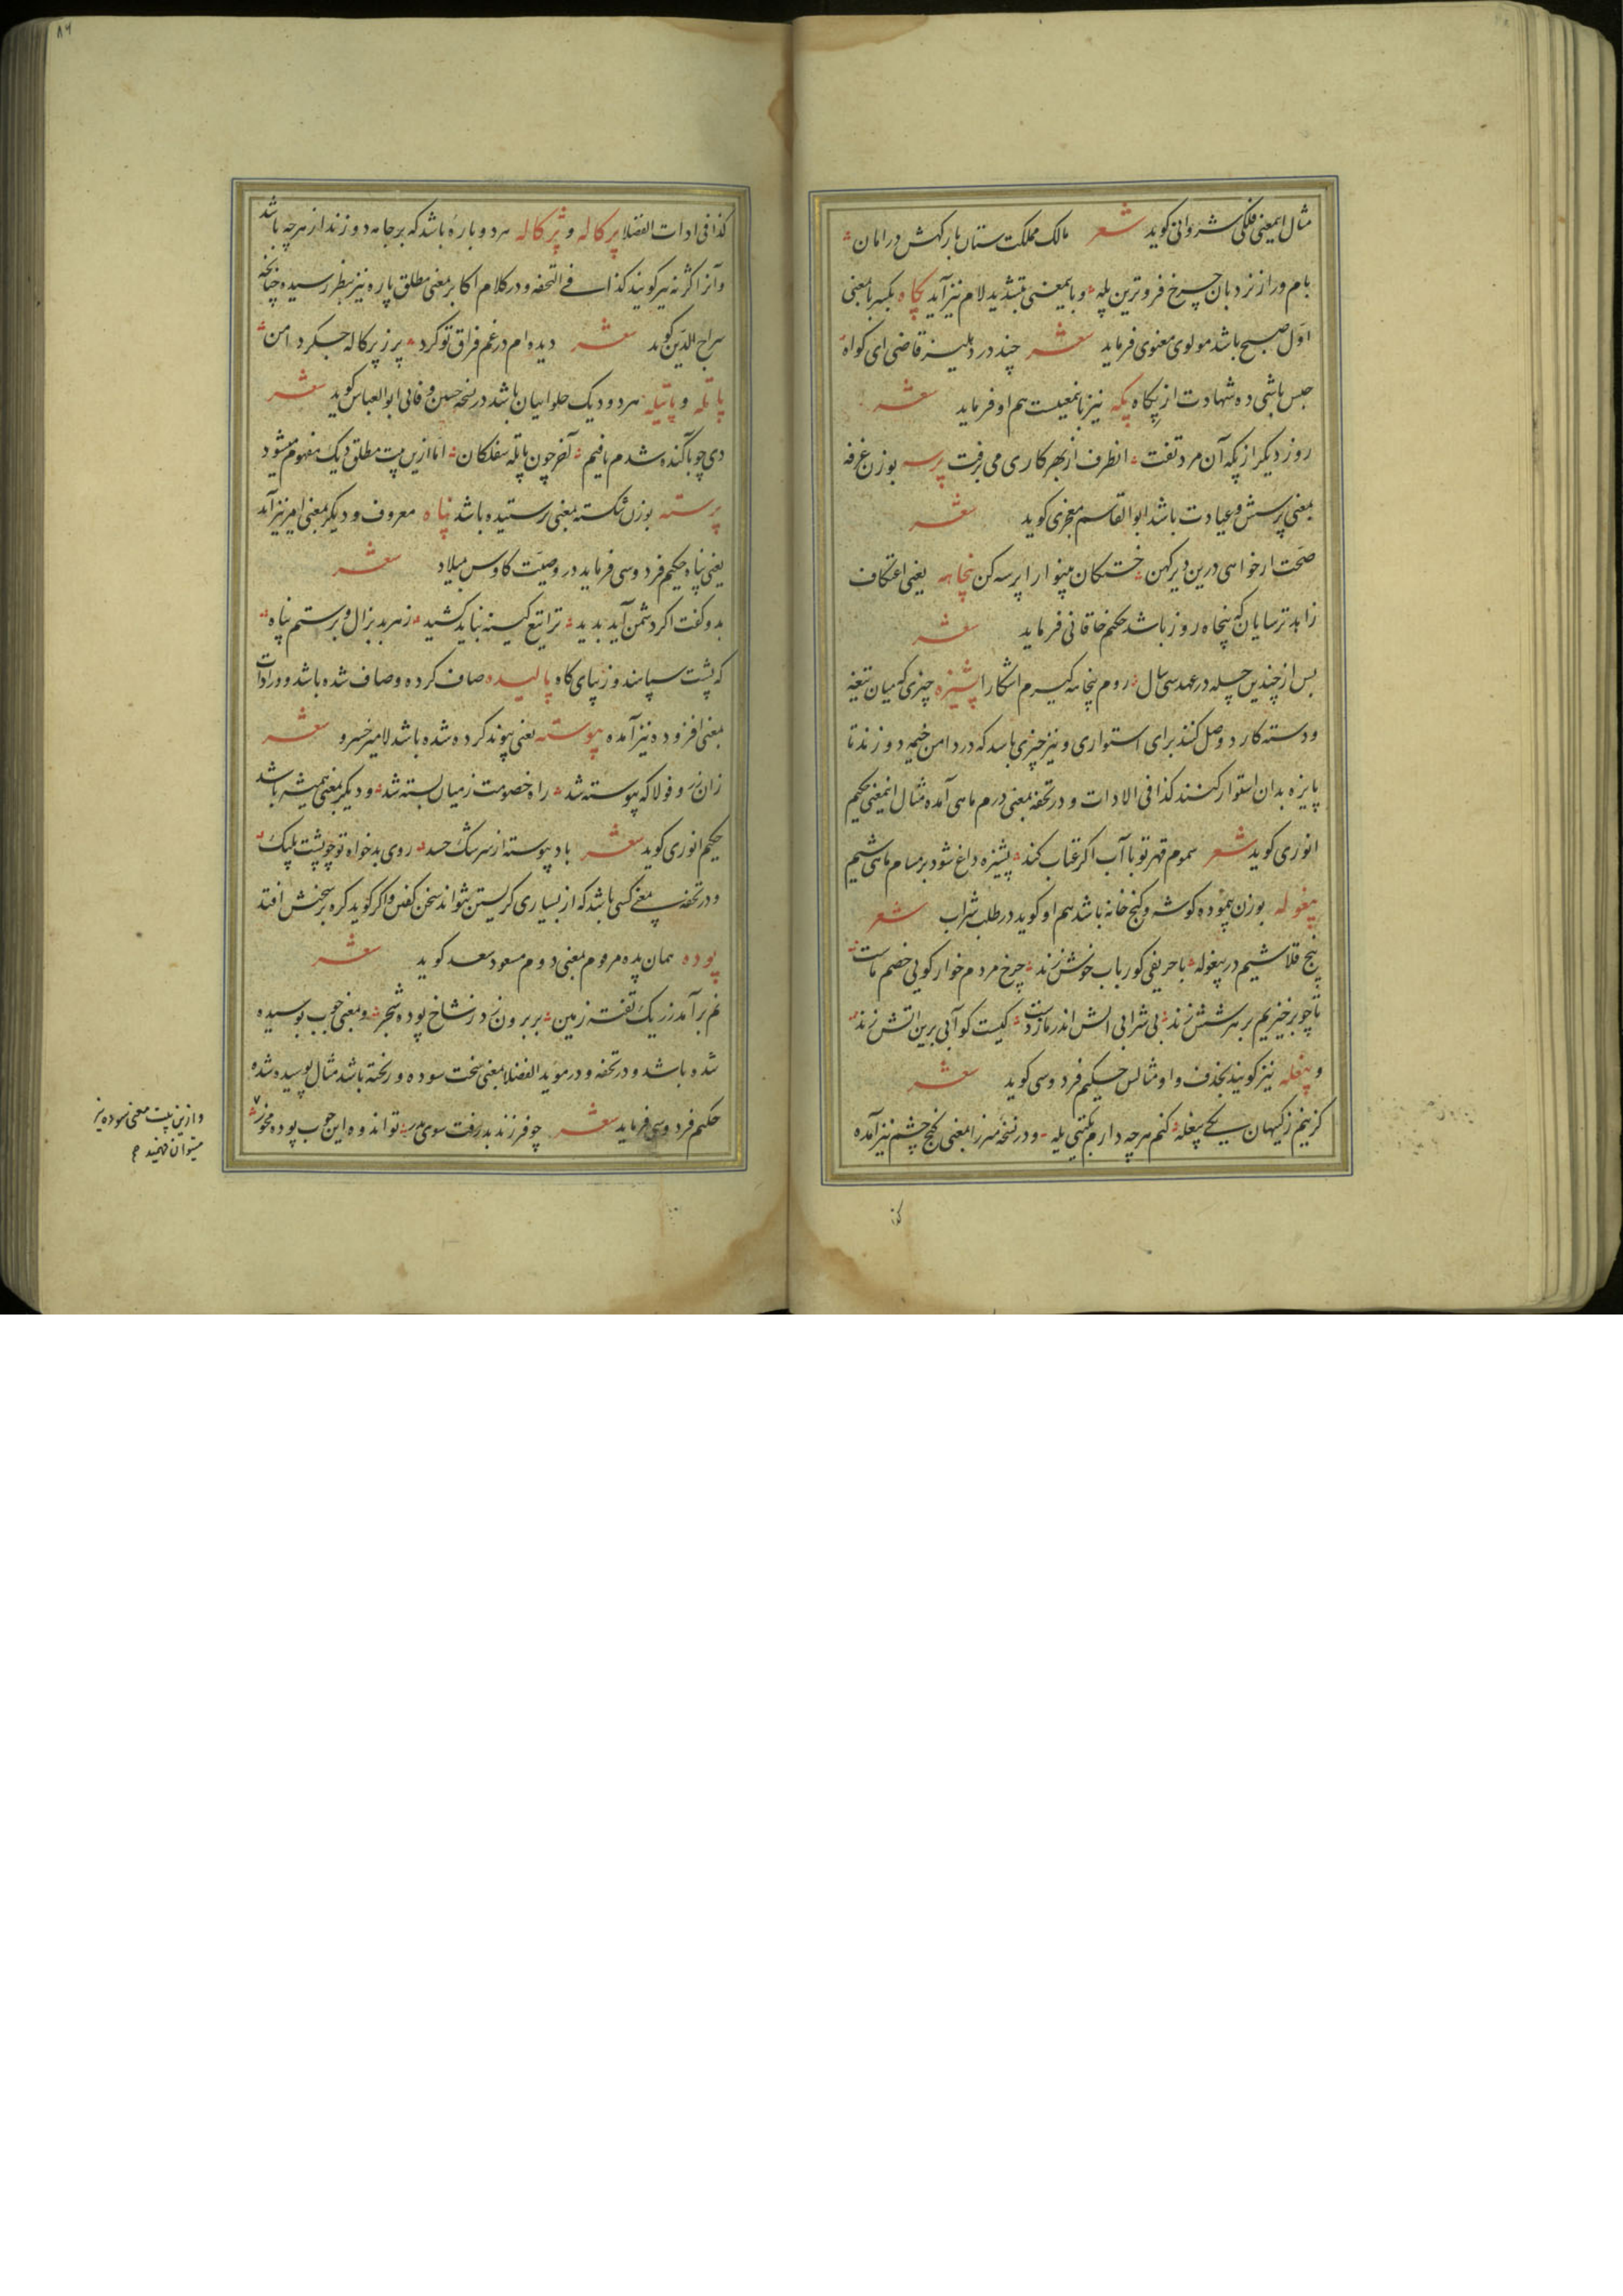 مثال اینمعنی فلکی شروانی کوید شعر مالک مملکت ستان بارکهش در امان
بام ورا ز نردبان چرخ فروترین پله و باینمعنی بتشدید لام نیز آید پکاه بکسر با بمعنی
اول صبح باشد مولوی معنوی فرماید شعر چند در دهلیز قاضی ای کواه
حبس باشی ده شهادت از پکاه پکه نیز باینمعنیست هم او فرماید شعر
روز دیکر از پکه آن مرد تفت انطرف از بهر کاری می برفت پرسه بوزن غرفه
بمعنی پرسش و عیادت باشد ابوالقاسم مفخری کوید شعر
صحت ار خواهی درین دیر کهن خستکان بینوا را پرسه کن پنجاهه یعنی اعتکاف
زاهد ترسایان که پنجاه روز باشد حکیم خاقانی فرماید شعر
پس از چندین چله در عهد سی سال روم پنجاهه کیرم اشکارا پشیزه چیزی که میان تیغه
و دسته کارد وصل کنند برای استواری و نیز چیزی باشد که در دامن خیمه دوزند تا
پایزه بدان استوار کنند کذا فی الادات و در تحفه بمعنی درم ماهی آمده مثال اینمعنی حکیم
انوری کوید شعر سموم قهر تو با آب اکر عتاب کند پشیزه داغ شود بر مسام ماهی شیم
پیغوله بوزن بیهوده کوشه و کنج خانه باشد هم او کوید در طلب شراب شعر
پنج قلاشیم در پیغوله با حریفی کو رباب خوش زند چرخ مردم خوار کویی خصم ماست
تا چو برخیزیم بر هر شش زند بی شرابی اتش اندر ما زدست کیست کو آبی برین اتش زند
و پیغله نیز کویند بحذف واو مثالش حکیم فردوسی کوید شعر
کزینم ز کیهان یکی پیغله کنم هر چه دارم بکیتی یله و در نسخه میرزا بمعنی کنج چشم نیز آمده
کذا
کذا فی ادات الفضلا پرکاله و پژکاله هر دو پاره باشد که بر جامه دوزند از هر چه باشد
و آنرا کژنه نیز کویند کذا فی التحفه و در کلام اکابر بمعنی مطلق پاره نیز بنظر رسیده چنانچه
سراج الدین کوید شعر دیده ام در غم فراق تو کرد پر ز پرکاله جکر دامن
پاتله و پاتیله هر دو دیک حلواییان باشد در نسخه حسین وفائی ابوالعباس کوید شعر
دی چو باکنده شدم یافتم آخر چون پاتله سفلکان اما ازین بیت مطلق دیک مفهوم میشود
پرسته بوزن شکسته بمعنی پرستیده باشد پناه معروف و دیکر بمعنی امر نیز آید
یعنی پناه حکیم فردوسی فرماید در وصیت کاوس میلاد شعر
بدو کفت اکر دشمن آید پدید ترا تیغ کینه بباید کشید ز هر بد بزال و برستم پناه
که پشت سپاهند و زیبای کاه پالیده صاف کرده و صاف شده باشد و در ادات
بمعنی افزوده نیز آمده پیوسته یعنی پیوند کرده شده باشد لامیر خسرو شعر
زان نرو فولا که پیوسته شد راه خصومت ز میان بسته شد و دیکر بمعنی همیشه باشد
حکیم انوری کوید شعر باد پیوسته از سرشک حسد روی بدخواه تو چو پشت پلنک
و در تحفه بمعنی کسی باشد که از بسیاری کریستن نتواند سخن کفتن و اکر کوید کره بر سخنش افتد
پوده همان پده مرقوم بمعنی دوم مسعود سعد کوید شعر
نم برآمد ز ریک تفته زمین بر برون زد ز شاخ پوده شجر و بمعنی چوب پوسیده
شده باشد و در تحفه و در موید الفضلا بمعنی سخت سوده و ریخته باشد مثال پوسیده شده
حکیم فردوسی فرماید شعر چو فرزند بد رفت سوی پدر تو اندوه این چوب پوده مخور
و ازین بیت معنی سوده نیز
میتوان فهمید